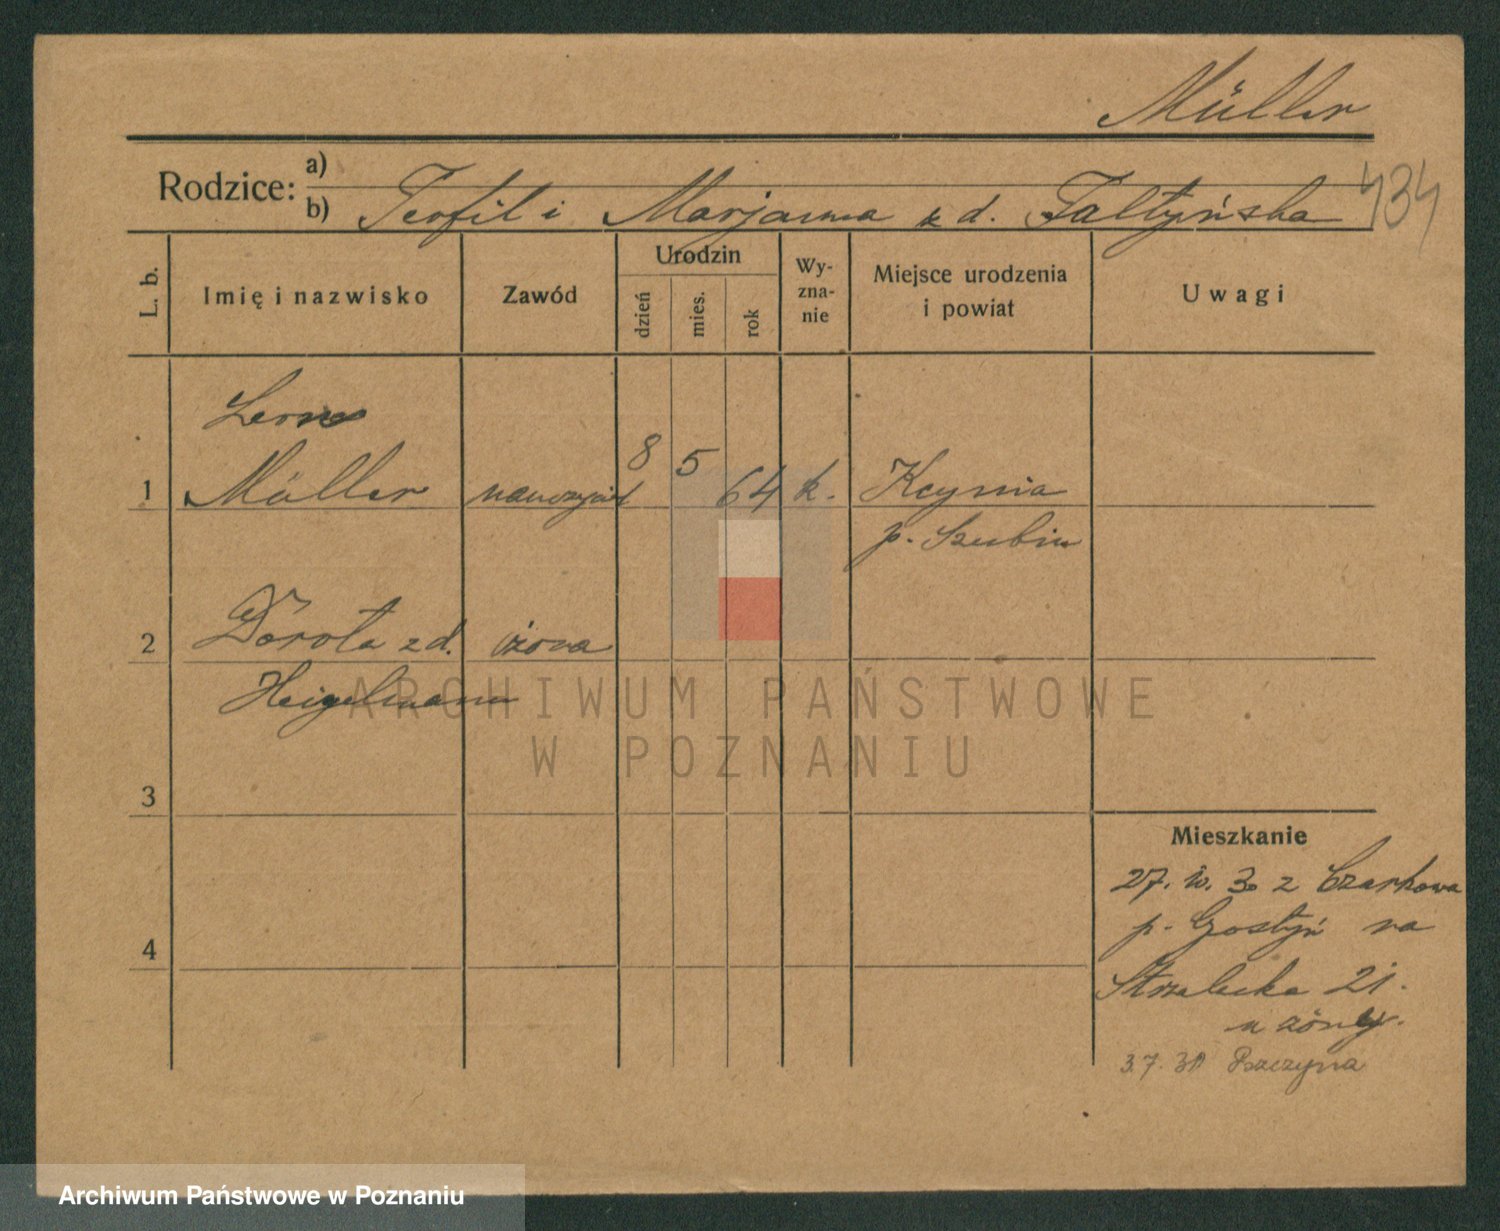 Müller
Rodzice: a)
b) Teofil i Marjanna z d. Faltyńska
434
L. b.
Imię i nazwisko
Zawód
Urodzin
dzień
mies.
rok
Wy-
zna-
nie
Miejsce urodzenia
i powiat
Uwagi
Leon
1 Müller nauczyciel 8 5 64 k. Kcynia
p. Szubin
2 Dorota z d. żona
Heigelmann
3
4
Mieszkanie
27. 30 z Czarkowa
p. Gostyń na
Strzelecka 21.
u żony.
3.7.31 Pszczyna
ARCHIWUM PAŃSTWOWE
W POZNANIU
Archiwum Państwowe w Poznaniu